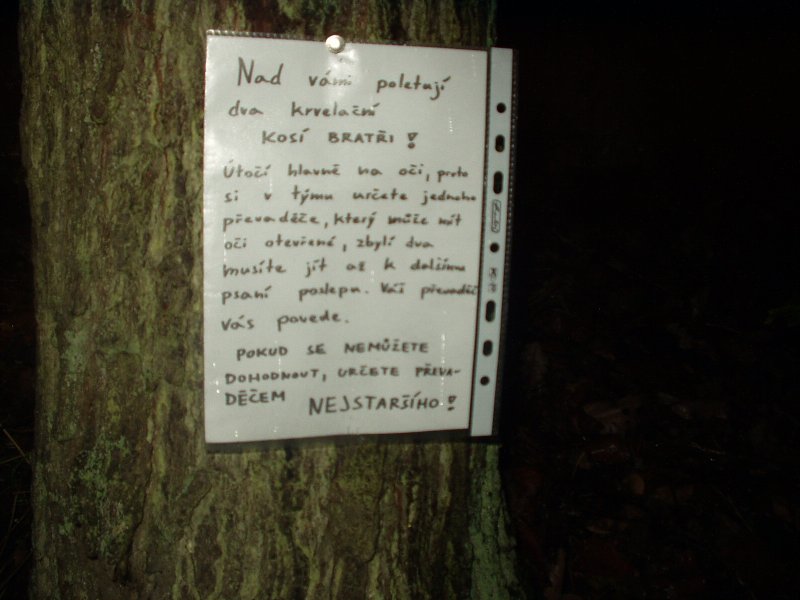 Nad vámi poletují
dva krvelační
KOSÍ BRATŘI!
Útočí hlavně na oči, proto
si v týmu určete jednoho
převaděče, který může mít
oči otevřené, zbylí dva
musíte jít až k dalšímu
psaní poslepu. Váš převaděč
vás povede.
POKUD SE NEMŮŽETE
DOHODNOUT, URČETE PŘEVA-
DĚČEM NEJSTARŠÍHO!